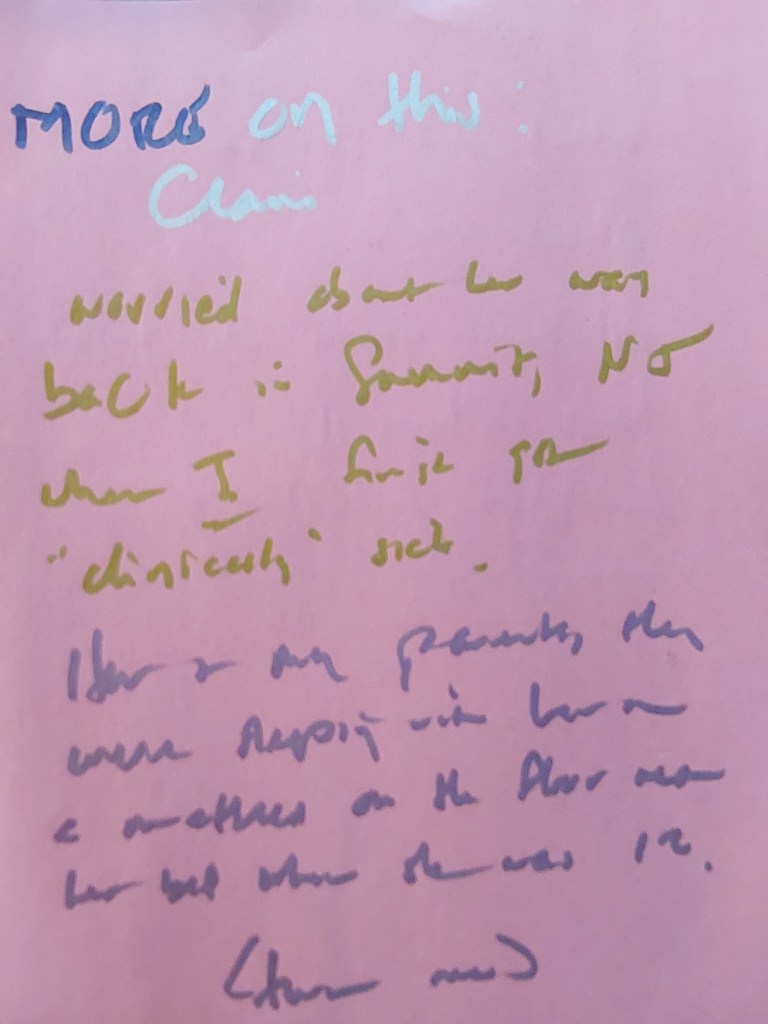 MORE on this:
Clair
worried about her way
back in Summit, NJ
when I first got
"clinically" sick.
Her & my parents, they
were sleeping with her on
a mattress on the floor near
her bed when she was 12.
(turn over)